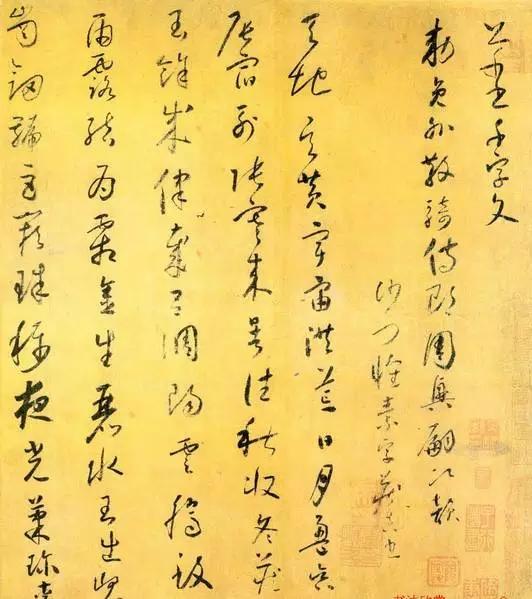 千字文
敕員外散騎侍郎周興嗣次韻
沙門懷素字藏真書
天地玄黃宇宙洪荒日月盈昃
辰宿列張寒來暑往秋收冬藏
閏餘成律歲呂調陽雲騰致
雨露結為霜金生麗水玉出崐
崗劍號巨闕珠稱夜光菓珍李